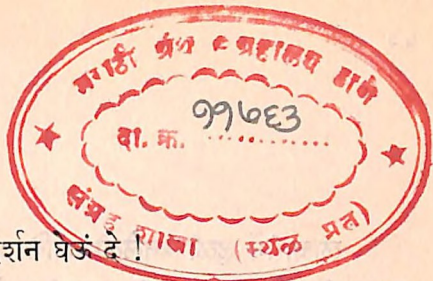 मराठी ग्रंथ संग्रहालय ठाणे
दा. क्र. ११७६३
संग्रह शाखा (स्थळ प्रत)
र्शन घेऊं दे !